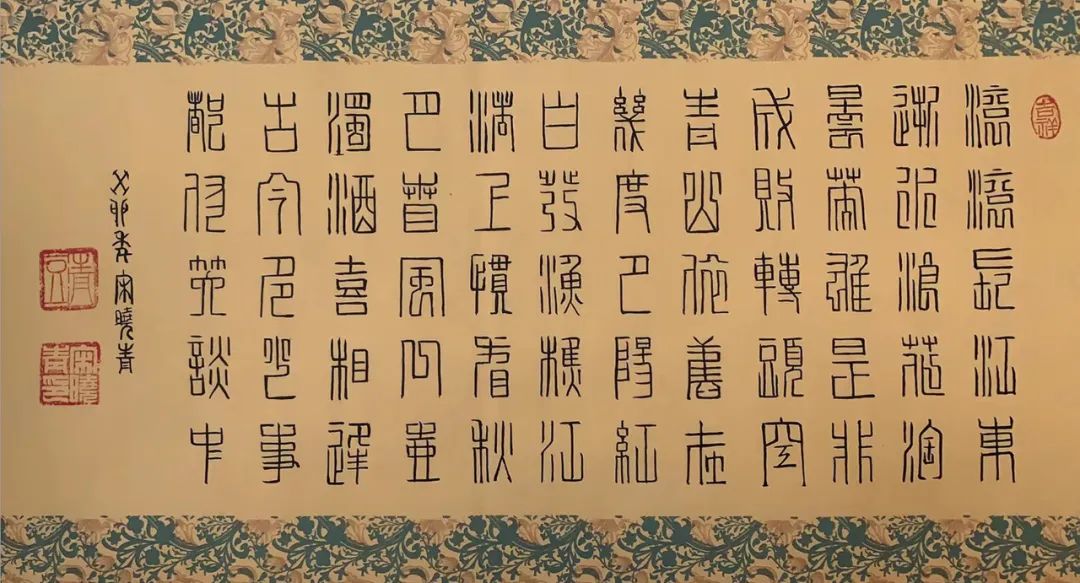 吉祥
滾滾長江東
逝水浪花淘
盡英雄是非
成敗轉頭空
青山依舊在
幾度夕陽紅
白發漁樵江
渚上慣看秋
月春風一壺
濁酒喜相逢
古今多少事
都付笑談中
癸卯季宋曉青
宋曉青印